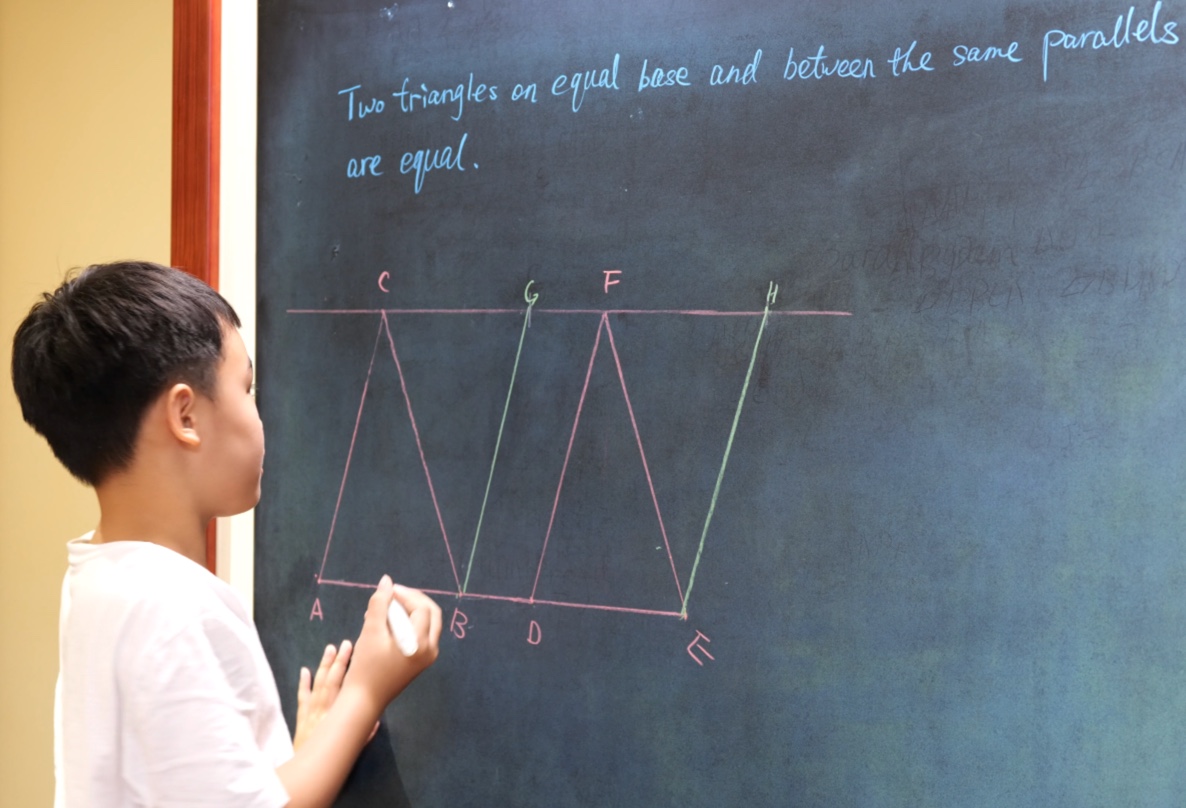 Two triangles on equal base and between the same parallels
are equal.
C G F H
A B D E